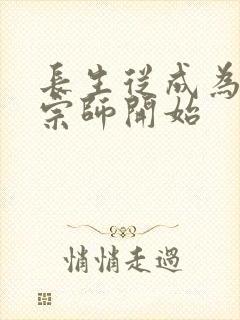 長生從成為
宗師開始
悄悄走過